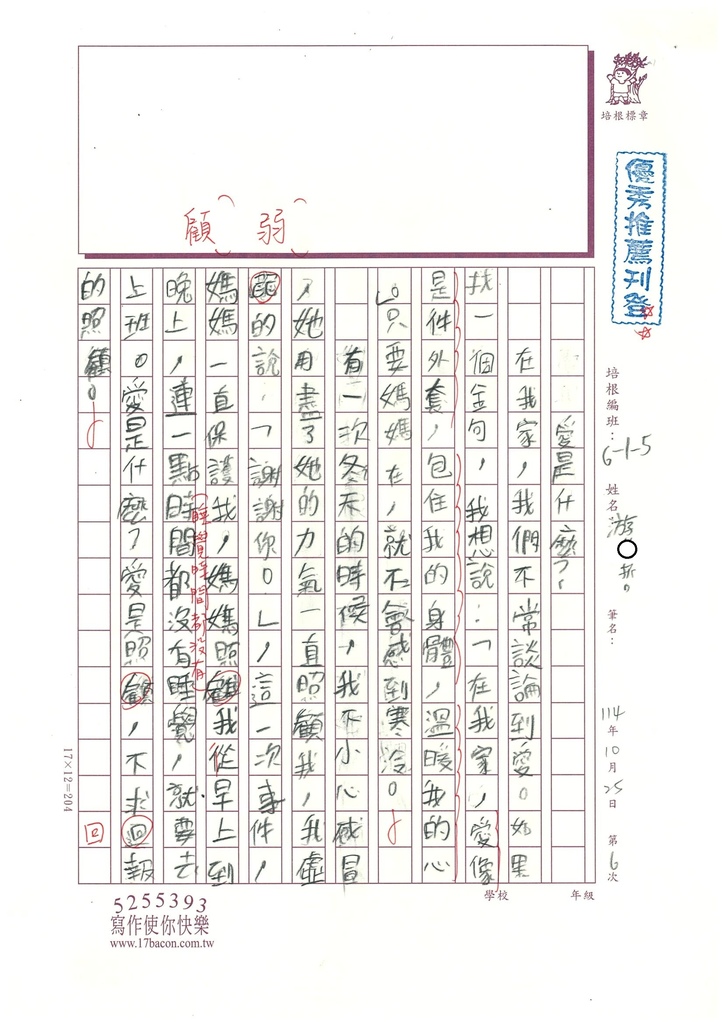 培根標章
優秀推薦刊登
培根編班:6-1-5 姓名 游 哲 筆名:
114年10月25日 第6次
學校 年級
顧 弱
愛是什麼?
在我家,我們不常談論到愛。如果
找一個金句,我想說:「在我家,愛像
是件外套,包住我的身體,溫暖我的心
。」只要媽媽在,就不會感到寒冷。
有一次冬天的時候,我不小心感冒
,她用盡了她的力氣一直照顧我,我虛
弱的說:「謝謝你。」,這一次事件,
媽媽一直保護我,媽媽照顧我從早上到
睡覺時間都沒有
晚上,連一點時間都沒有睡覺,就要去
上班。愛是什麼?愛是照顧,不求回報
回
的照顧。
17×12=204
5255393
寫作使你快樂
www.17bacon.com.tw